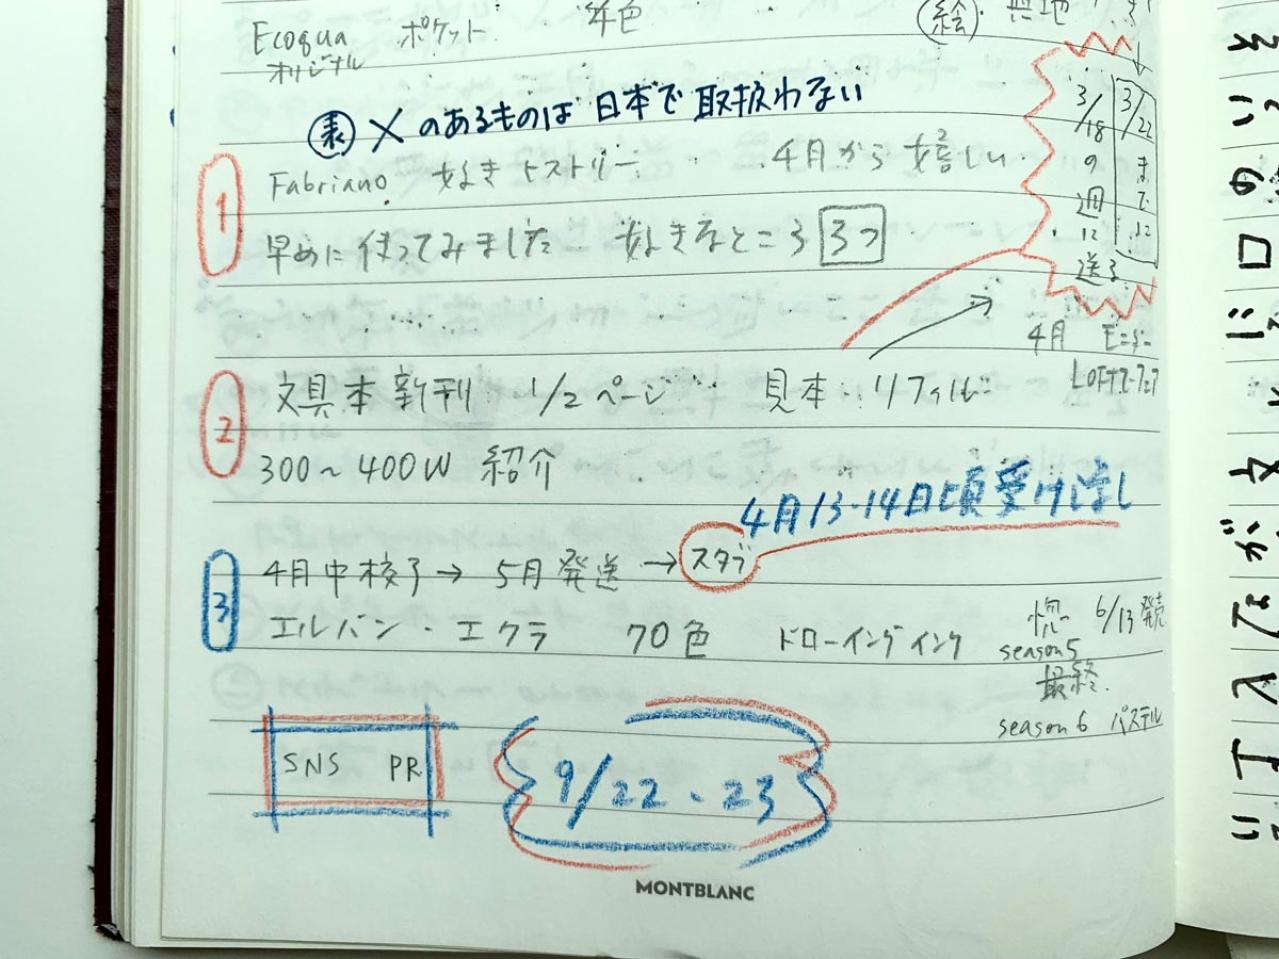 Ecoqua ポケット 4色 絵 無地
オリジナル
表 ×のあるものは 日本で 取扱わない
1
Fabriano 好き ヒストリー 4月から 嬉しい
早めに 使ってみました 好きなところ 3つ
3/22 までに
3/18の週に送る
4月 モニター
LOFT
2
文具本 新刊 1/2ページ 見本 リフィル
300〜400W 紹介
4月13-14日頃 受け渡し
3
4月中 校了 → 5月 発送 →
エルバン・エクラ 70色 ドローイングインク
6/13 発売
season5
最終
season6 パステル
SNS PR
9/22・23
MONTBLANC